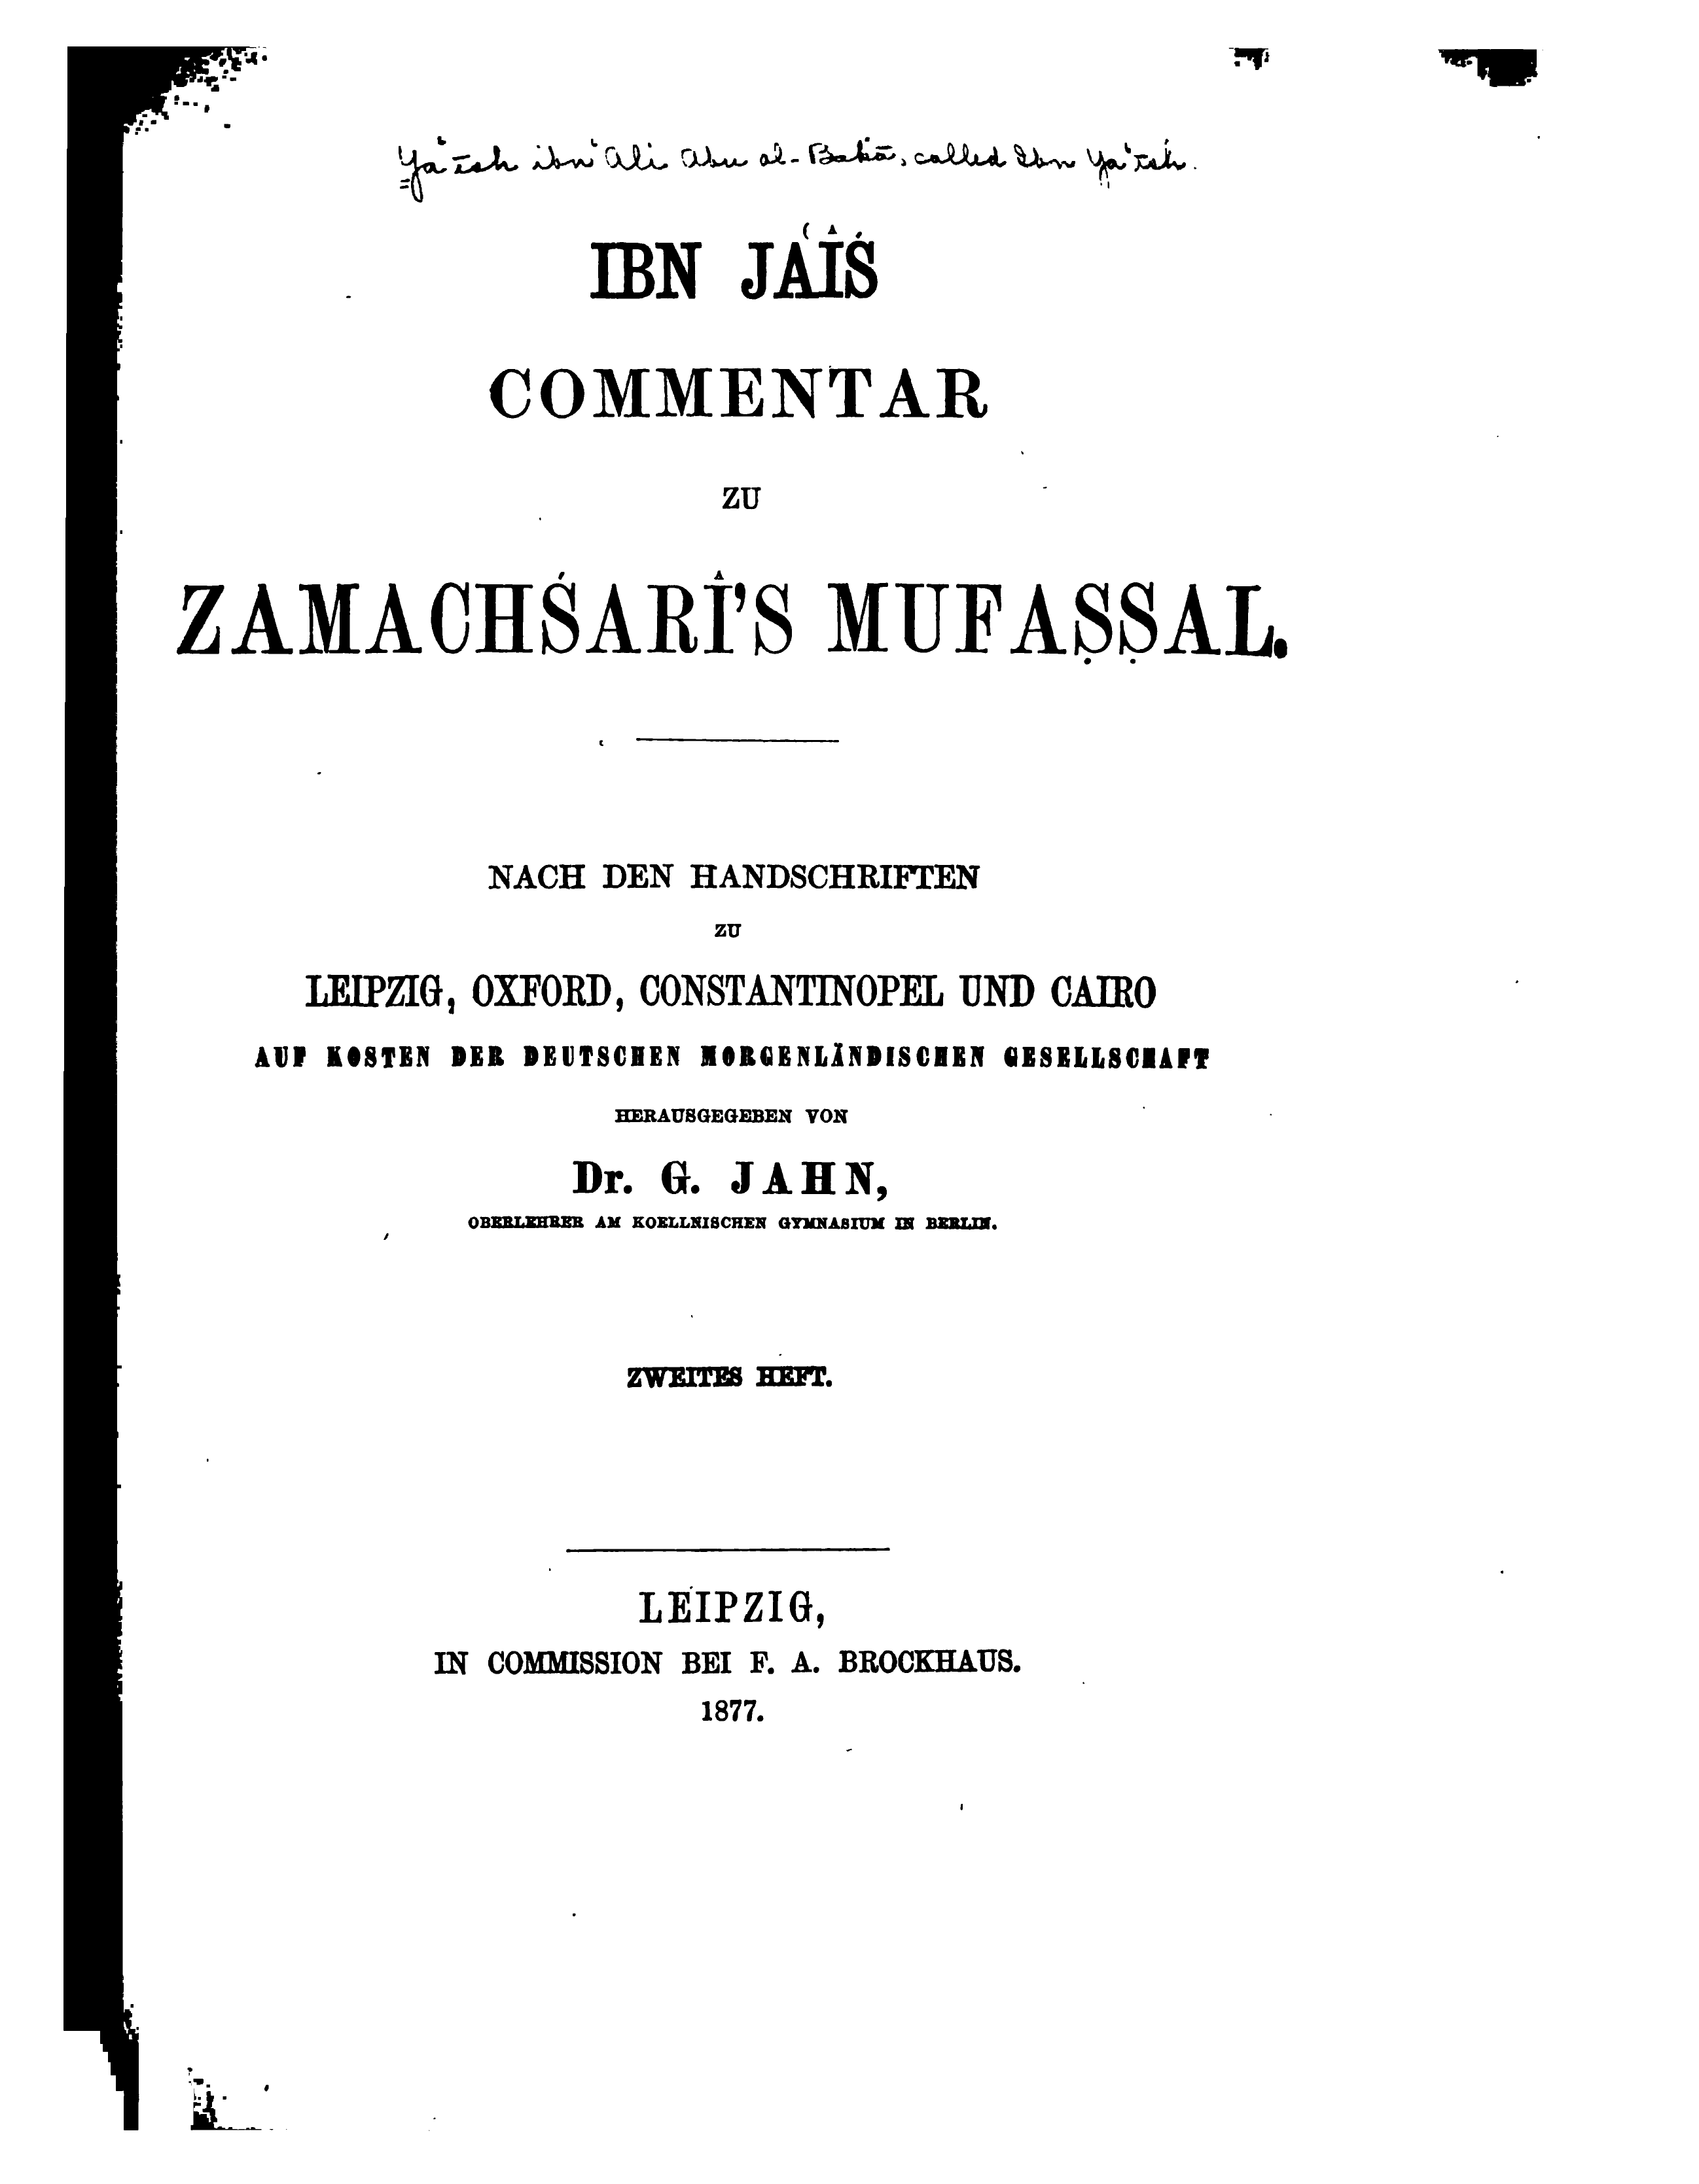 Ya‘īsh ibn ‘Ali Abu al-Bakā, called Ibn Ya‘īsh.
IBN JAʿÎŚ
COMMENTAR
ZU
ZAMACHŚARÎ'S MUFAṢṢAL.
NACH DEN HANDSCHRIFTEN
ZU
LEIPZIG, OXFORD, CONSTANTINOPEL UND CAIRO
AUF KOSTEN DER DEUTSCHEN MORGENLÄNDISCHEN GESELLSCHAFT
HERAUSGEGEBEN VON
Dr. G. JAHN,
OBERLEHRER AM KOELLNISCHEN GYMNASIUM IN BERLIN.
ZWEITES HEFT.
LEIPZIG,
IN COMMISSION BEI F. A. BROCKHAUS.
1877.